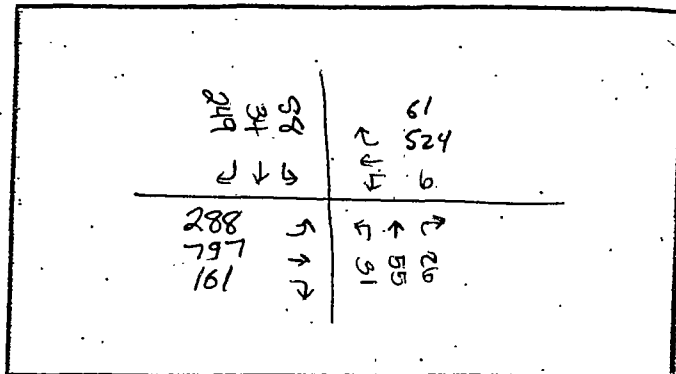 249
34
58
61
524
6
288
797
161
31
55
26